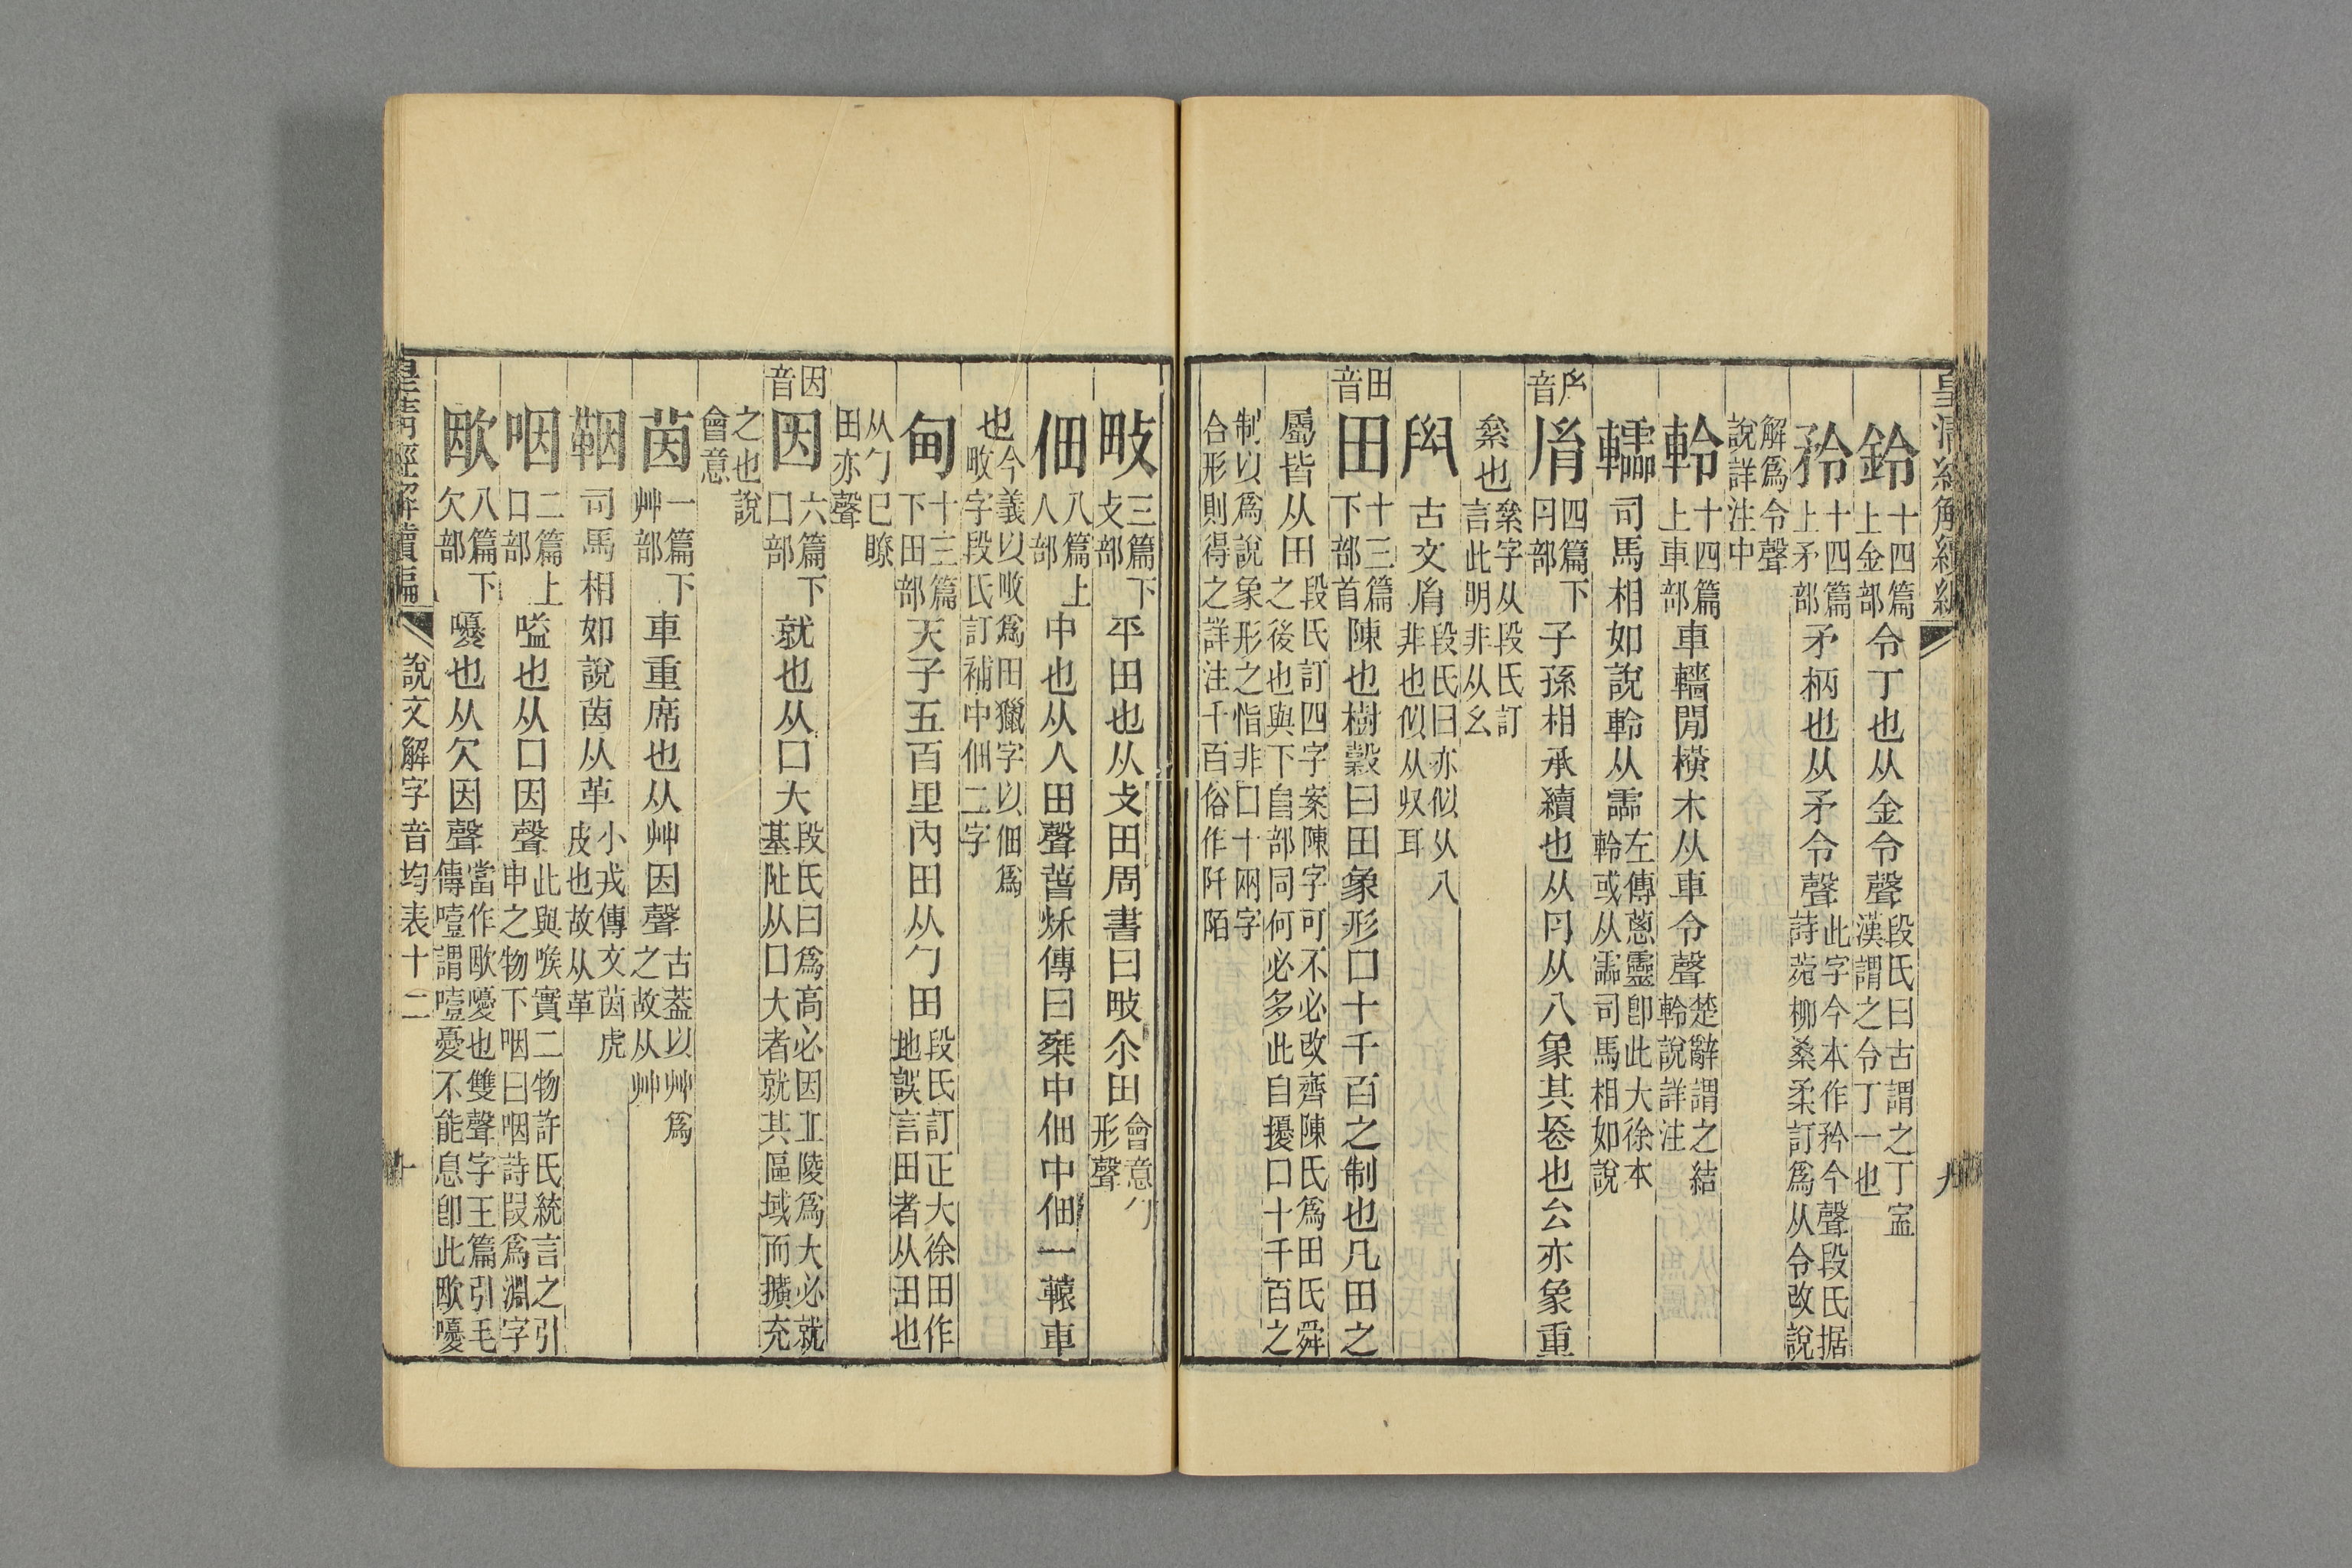 皇清經解續編
九
鈴十四篇上金部令丁也从金令聲段氏曰古謂之丁寍漢謂之令丁一也
矝十四篇上矛部矛柄也从矛令聲此字今本作矜今聲段氏据詩菀柳桑柔訂爲从令改說
解爲令聲說詳注中
軨十四篇上車部車轖閒橫木从車令聲楚辭謂之結軨說詳注
轜司馬相如說軨从霝左傳蔥靈卽此大徐本軨或从霝司馬相如說
𦙍音
𦙍四篇下肉部子孫相承續也从肉从八象其長也幺亦象重
絫也絫字从段氏訂言此明非从幺
𦙞古文𦙍段氏曰亦似从八非也似从収耳
田音
田十三篇下部首陳也樹穀曰田象形口十千百之制也凡田之
屬皆从田段氏訂四字案陳字可不必改齊陳氏爲田氏舜之後也與下𨸏部同何必多此自擾口十千百之
制以爲說象形之恉非口十兩字合形則得之詳注千百俗作阡陌
畋三篇下攴部平田也从攴田周書曰畋尒田會意形聲
佃八篇上人部中也从人田聲春秋傳曰乗中佃中佃一轅車
也今義以畋爲田獵字以佃爲畋字段氏訂補中佃二字
甸十三篇下田部天子五百里內田从勹田段氏訂正大徐田作地誤言田者从田也
从勹已瞭田亦聲
因音
因六篇下口部就也从口大段氏曰爲高必因丠陵爲大必就基阯从口大者就其區域而擴充
之也說會意
茵一篇下艸部車重席也从艸因聲古葢以艸爲之故从艸
鞇司馬相如說茵从革小戎傳文茵虎皮也故从革
咽二篇上口部嗌也从口因聲此與喉實二物許氏統言之引申之物下咽曰咽詩叚爲淵字
欭八篇下欠部嚘也从欠因聲當作欭嚘也雙聲字王篇引毛傳噎謂噎憂不能息卽此欭嚘
皇清經解續編
說文解字音均表十二
十